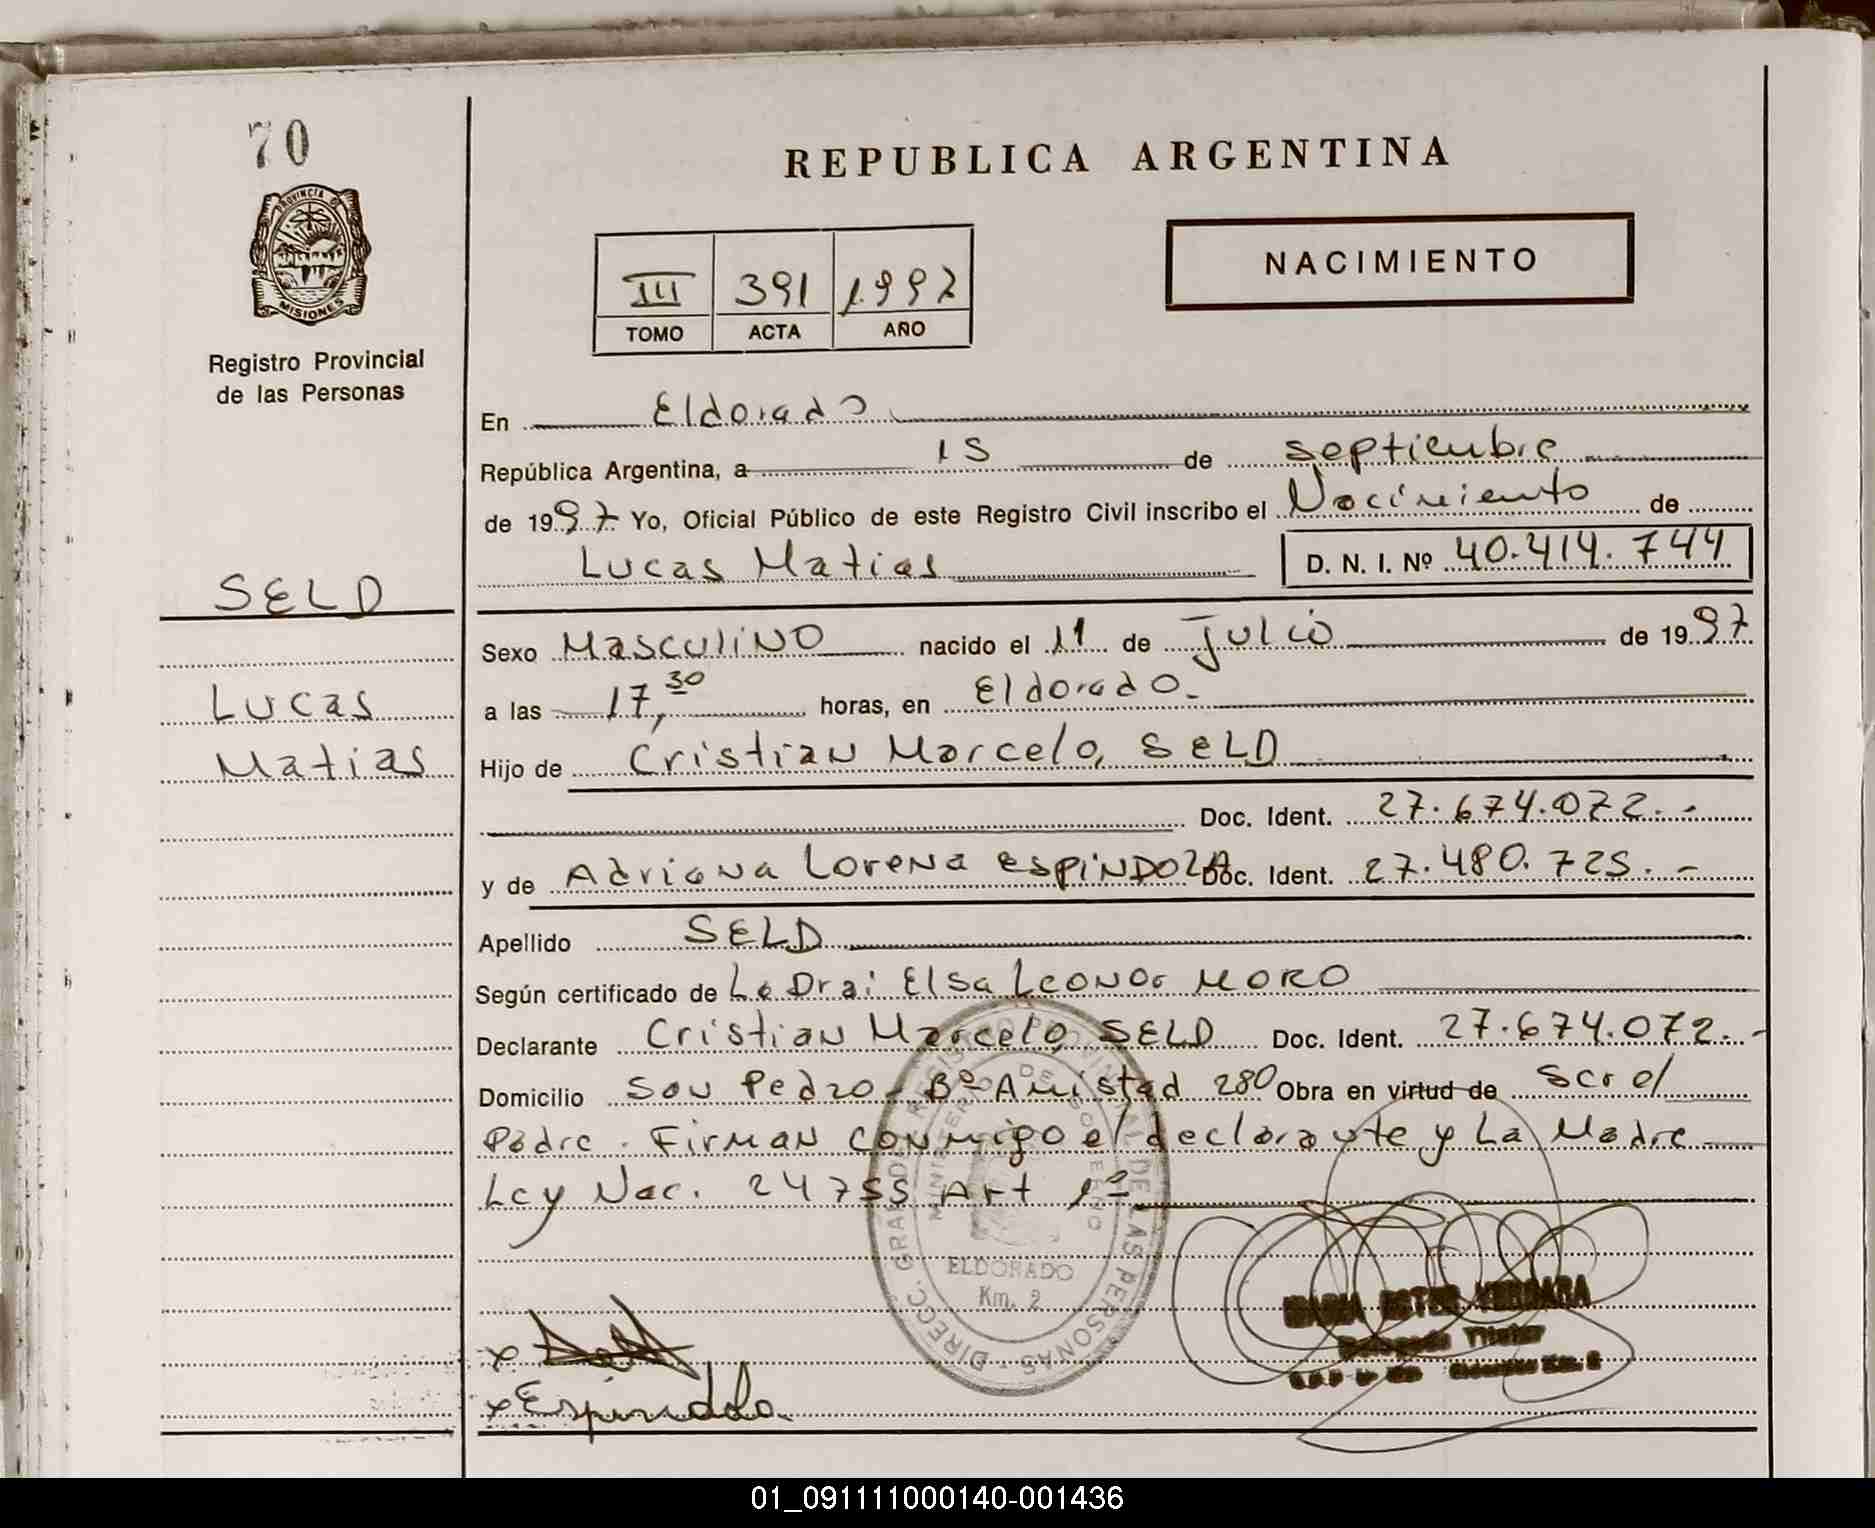 70
REPUBLICA ARGENTINA
PROVINCIA DE MISIONES
Registro Provincial
de las Personas
III 391 1997
TOMO ACTA AÑO
NACIMIENTO
En Eldorado
República Argentina, a 15 de septiembre
de 1997 Yo, Oficial Público de este Registro Civil inscribo el Nacimiento de
Lucas Matias D. N. I. Nº 40.414.744
SELD
Lucas
Matias
Sexo Masculino nacido el 11 de Julio de 1997
a las 17,30 horas, en Eldorado.
Hijo de Cristian Marcelo, SELD
Doc. Ident. 27.674.072.-
y de Adriana Lorena ESPINDOLA Doc. Ident. 27.480.725.-
Apellido SELD
Según certificado de La Dra: Elsa Leonor MORO
Declarante Cristian Marcelo SELD Doc. Ident. 27.674.072.-
Domicilio San Pedro - Bº Amistad 280 Obra en virtud de Ser el
Padre. Firman conmigo el declarante y La Madre
Ley Nac. 24755 Art 1º
DIRECC. GRAL. DE REGISTRO PROVINCIAL DE LAS PERSONAS
MINISTERIO DE GOBIERNO
ELDORADO
Km. 2
MARIA ESTER VERGARA
Delegada Titular
Eldorado Km. 2
x
x Espindola
01_091111000140-001436